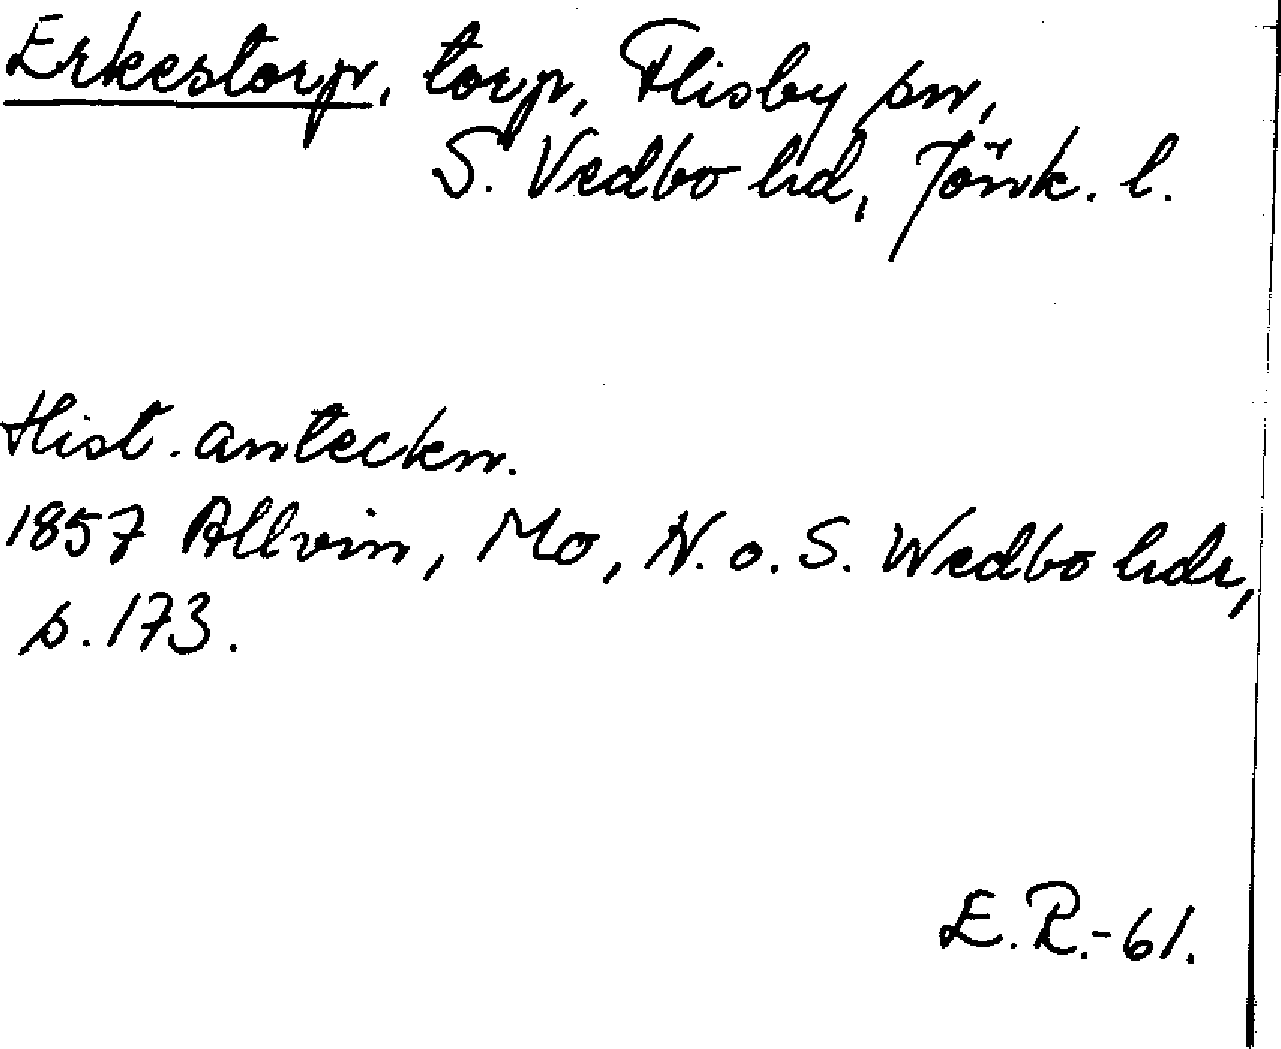 Erkestorp, torp, Flisby sn,
S. Vedbo hd, Jönk. l.
Hist. anteckn.
1857 Allvin, Mo, N. o. S. Wedbo hdr,
s. 173.
E. R. - 61.